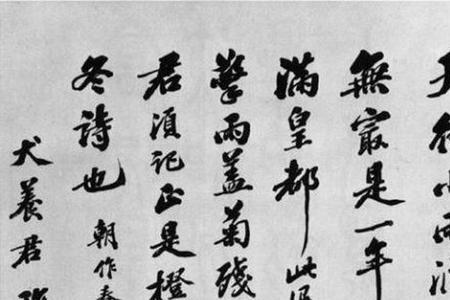 無最是一年
滿皇都此
擎雨蓋菊殘
君須記正是橙
冬詩也朝作春
犬養君